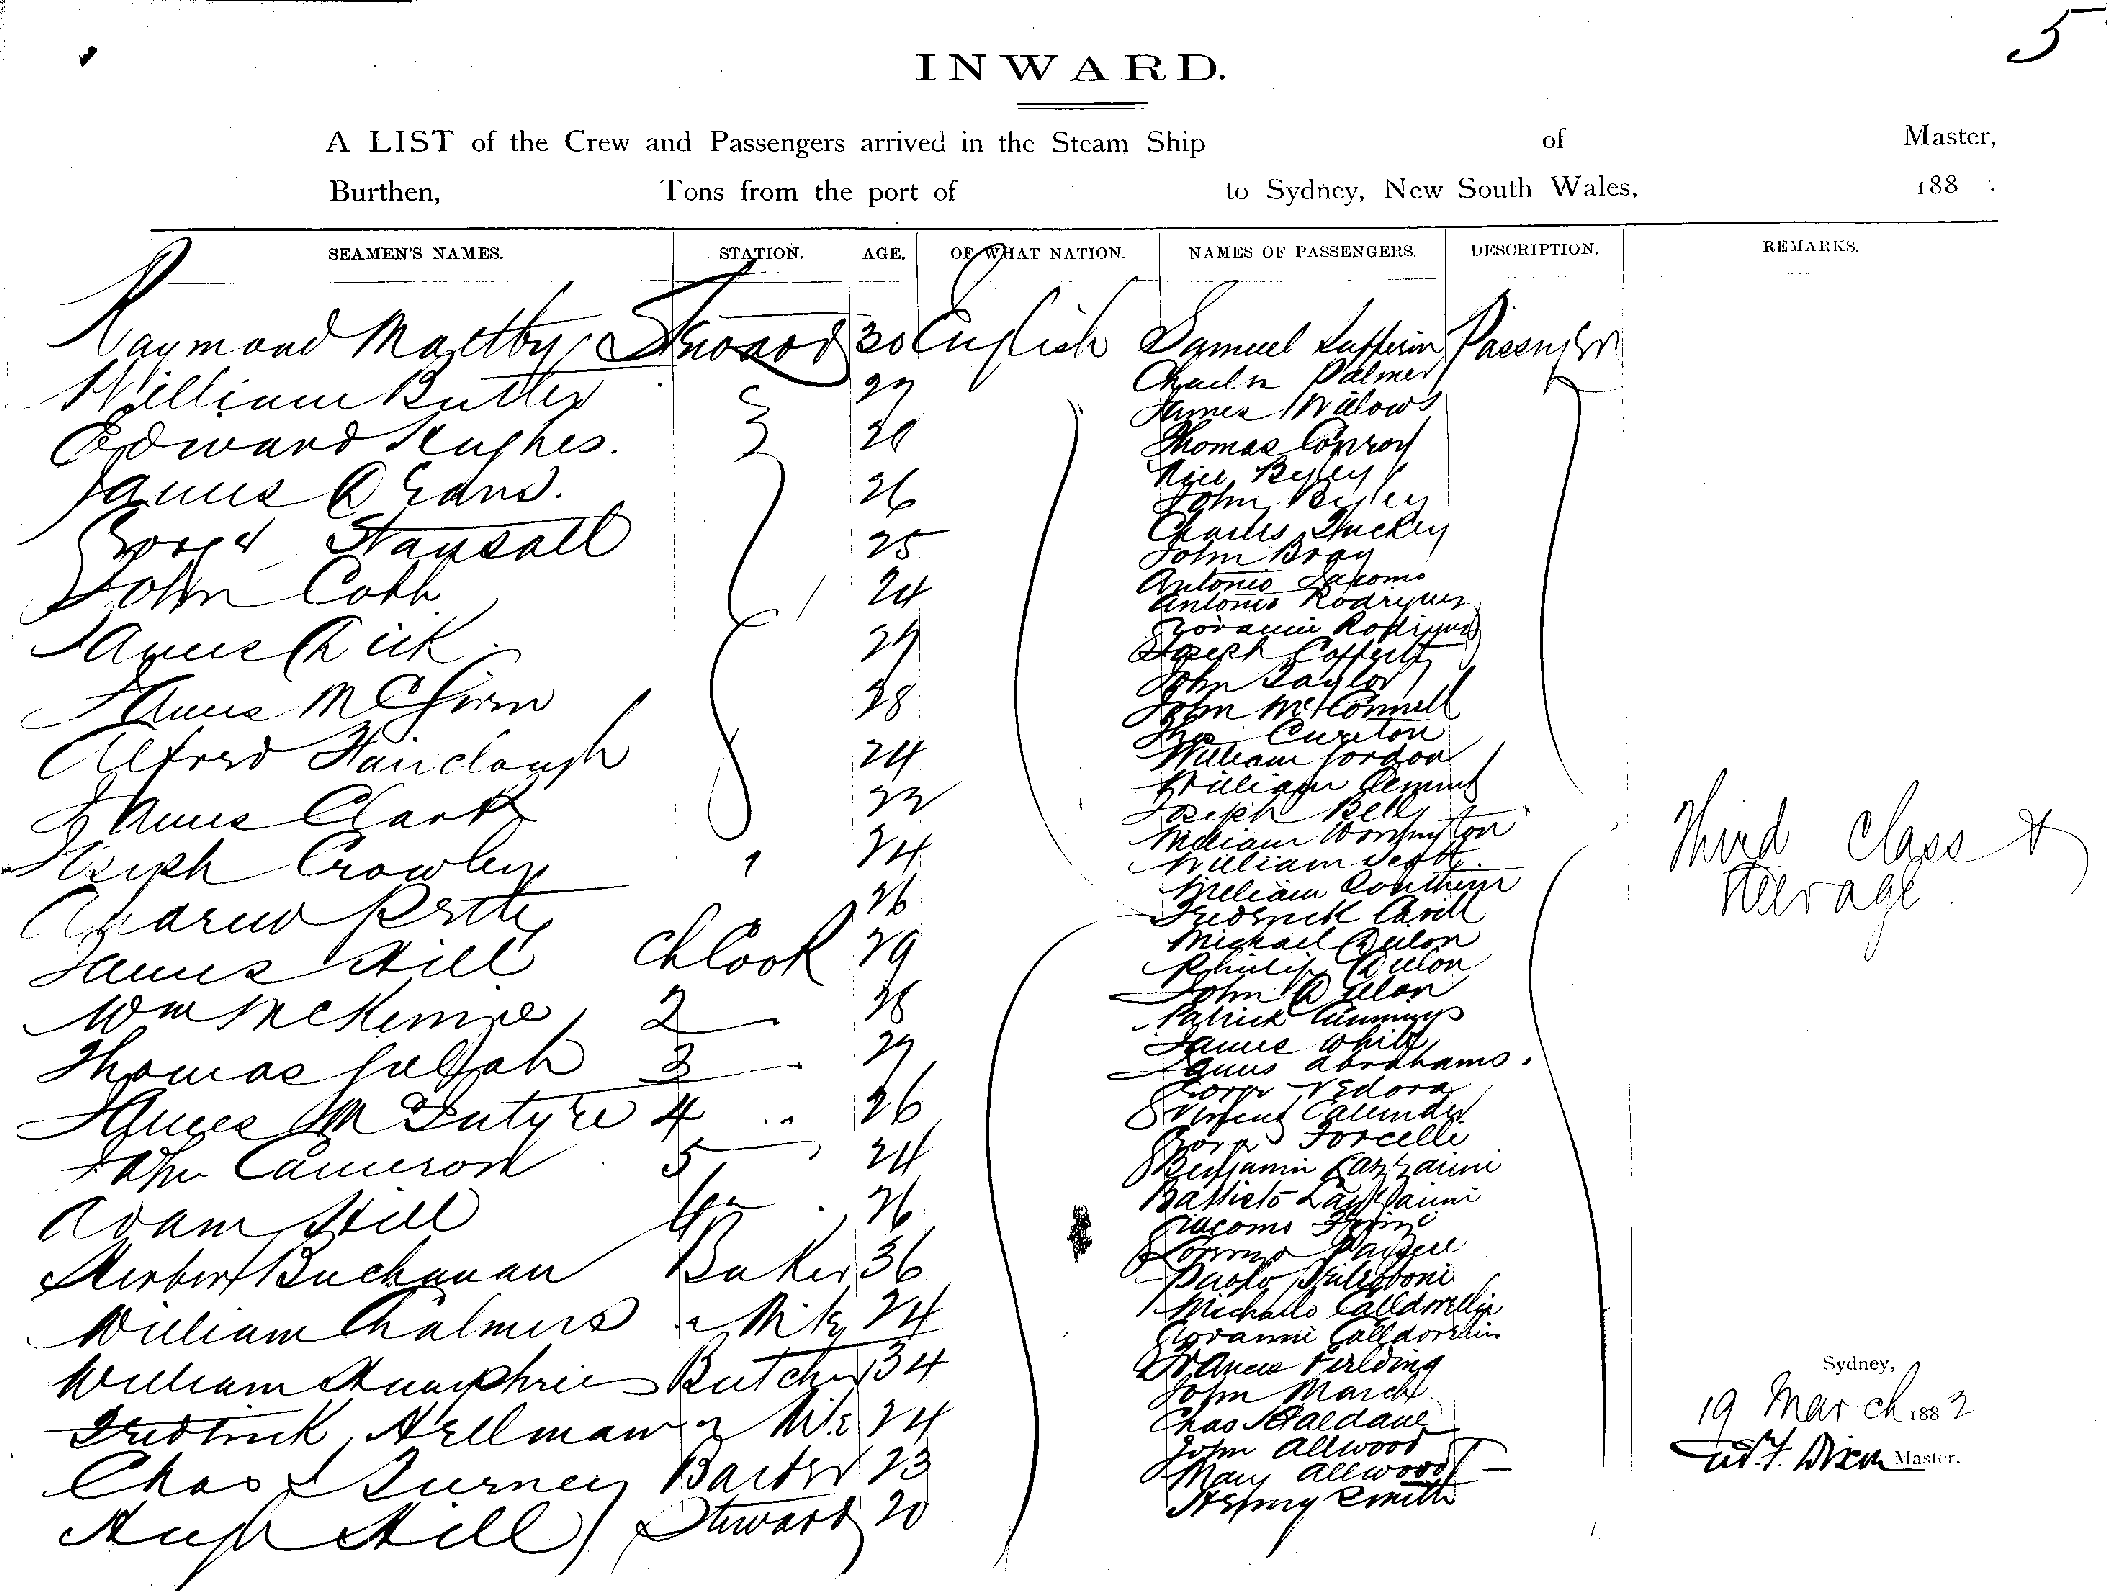 5
INWARD.
A LIST of the Crew and Passengers arrived in the Steam Ship of Master,
Burthen, Tons from the port of to Sydney, New South Wales, 188 .
SEAMEN'S NAMES. STATION. AGE. OF WHAT NATION. NAMES OF PASSENGERS. DESCRIPTION. REMARKS.
Raymond Maltby Steward 30 English Samuel Passenger
William Butler 27 Charles Palmer
James Willows
Edward Hughes. 28 Thomas Conroy
James Evans. 26 John Bysley
George Stansall 25 Charles Duckey
John Bray
John Cobb 24 Antonio Giacomo
Antonio Rodrigues
James Dick 29 Giovanni Rodrigues
Joseph Cofferty
James McGirm 28 John Taylor
John McConnell
Alfred Fairclough 24 Thos Cureton
William Gordon
James Clark 22 William Clement
Joseph Bell
Joseph Crowley 24 William Worthington
William Scott
Andrew Pettie 26 William Southern
Fredrick Cavill
James Hill Ch Cook 29 Michael Dillon
Philip Dillon
Wm McKenzie 2 28 John Dillon
Patrick Cummings
Thomas 3 27 James White
James Abrahams.
James McIntyre 4 " 26 Vedora
Vincent
John Cameron 5 24 Forcelli
Benjamin Lazzarini
Adam Hill 26 Battisto Lazzarini
Giacomo
Herbert Buchanan Baker 36 Lorenzo
Paolo
William Chalmers " Mte 24
Giovanni
William Humphries Butcher 34 Francis Fielding
John March
Fredrick Hellman " Mte 24 Chas Haldane
John Allwood
Chas Turney Barber 23 Mary Allwood
Hugh Hill Steward 20 Henry Smith
Third Class &
Steerage
Sydney,
19 March 1882
W. F. Dixon Master.